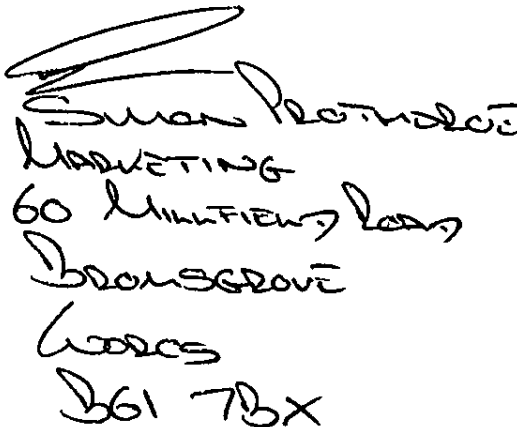 Simon Protheroe
Marketing
60 Millfield Road
Bromsgrove
Worcs
B61 7BX